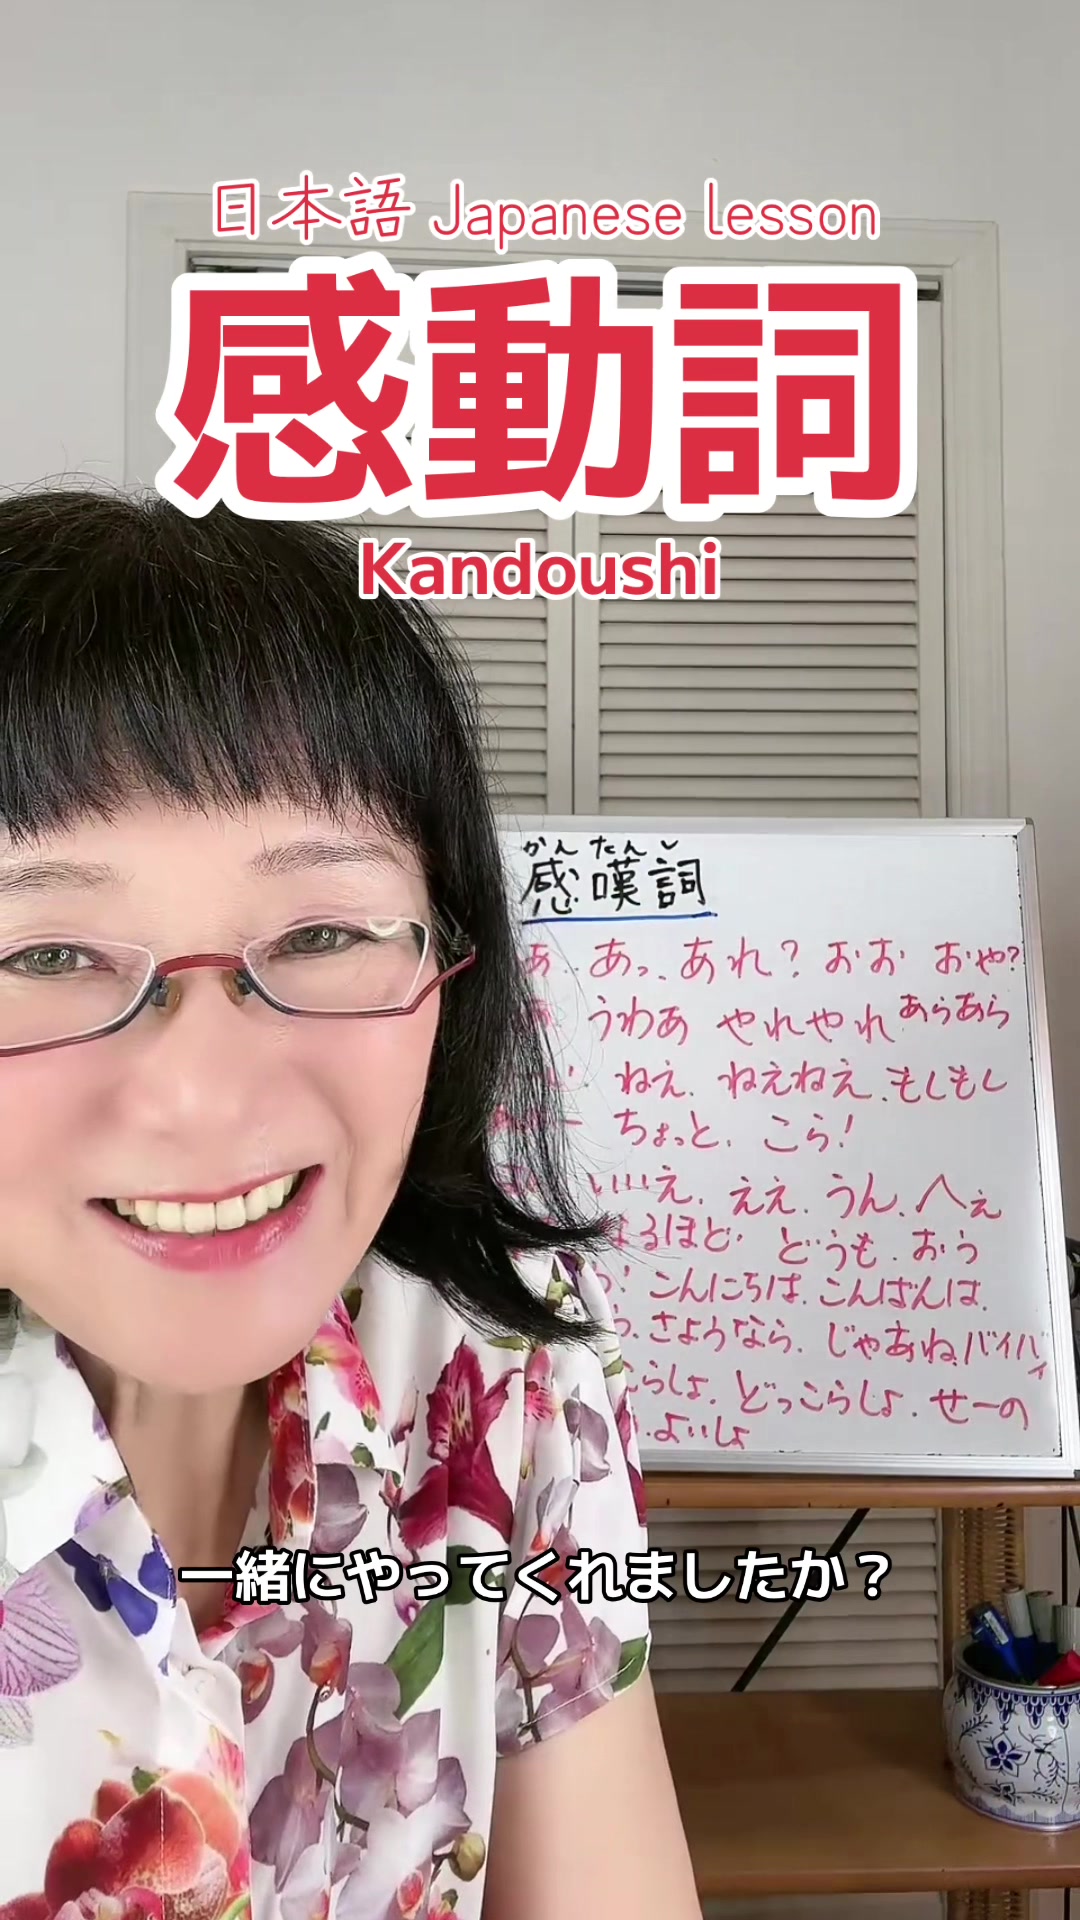 日本語 Japanese lesson
感動詞
Kandoushi
かんたんし
感嘆詞
あっ、あれ? おお おや?
うわあ やれやれ あらあら
ねえ、ねえねえ、もしもし
ちょっと、こら!
いいえ、ええ、うん、へえ
なるほど どうも、おう
こんにちは、こんばんは、
さようなら、じゃあね、バイバイ
こらしょ、どっこらしょ、せーの
よいしょ
一緒にやってくれましたか？